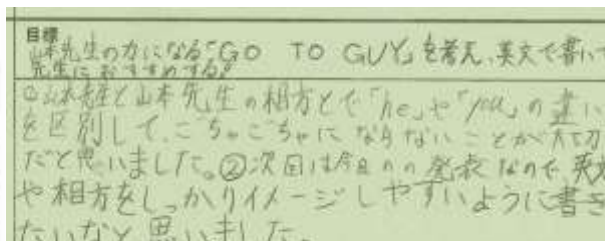 目標
山本先生の力になる「GO TO GUY」を考え、英文で書いて
先生におすすめする。
①山本先生と山本先生の相方とで「he」や「you」の違い
を区別して、ごちゃごちゃにならないことが大切
だと思いました。②次回は今日のの発表なので、英文
や相方をしっかりイメージしやすいように書き
たいなと思いました。